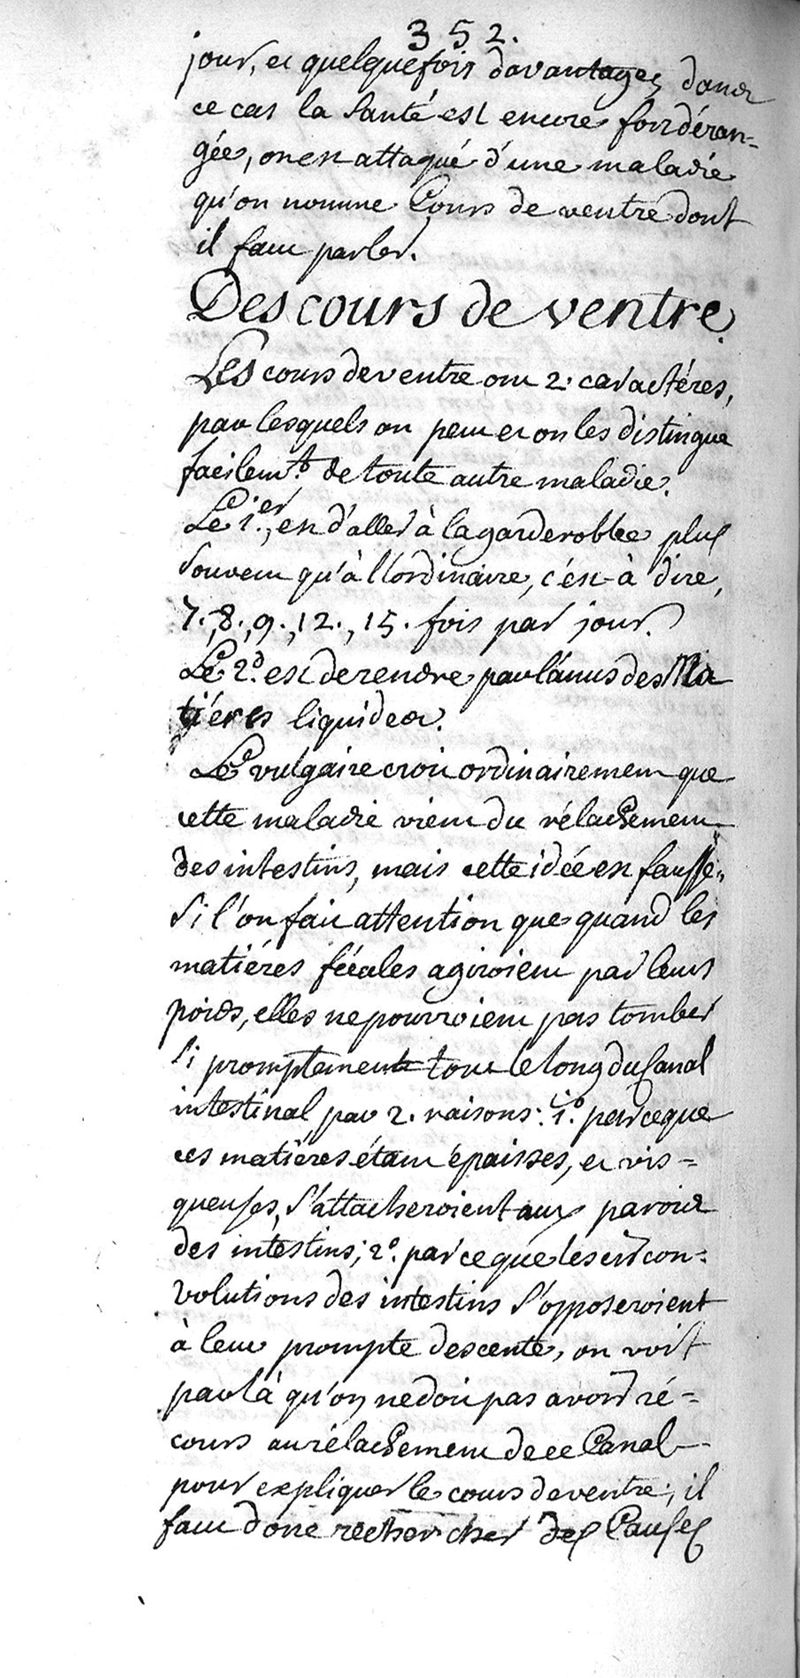 352.
jour, et quelquefois davantage, dans
ce cas la santé est encore fort déran=
gée, on est attaqué d'une maladie
qu'on nomme Cours de ventre dont
il faut parler.
Des cours de ventre.
Les cours de ventre ont 2. caractéres,
par lesquels on peut et on les distingue
facilem.t de toute autre maladie.
Le 1.er, est d'aller à la garderobbe plus
souvent qu'à l'ordinaire, c'est-à dire,
7., 8., 9., 12., 15. fois par jour.
Le 2.d est de rendre par l'anus des Ma
tiéres liquides.
Le vulgaire croit ordinairement que
cette maladie vient du rélachement
des intestins, mais cette idée est fausse,
Si l'on fait attention que quand les
matiéres fécales agiroient par leurs
poids, elles ne pourroient pas tomber
si promptement tout le long du Canal
intestinal par 2. raisons: 1.o parceque
ces matiéres étant épaisses, et vis=
queuses, s'attacheroient aux parois
des intestins; 2.o parceque les circon=
volutions des intestins s'opposeroient
à leur prompte descente, on voit
par là qu'on ne doit pas avoir ré=
cours au rélachement de ce Canal
pour expliquer le cours de ventre, il
faut donc rechercher des Causes